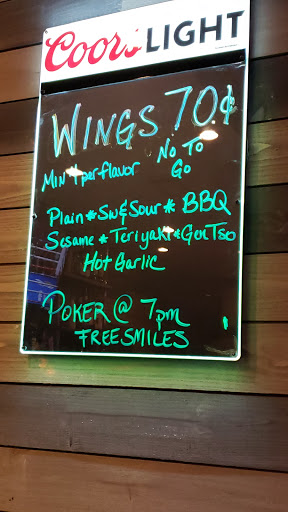 Coors LIGHT
WINGS .70¢
MIN 4 per flavor No To Go
Plain * Sw&Sour * BBQ
Sesame * Teriyaki * Gen Tso
Hot Garlic
POKER @ 7pm
FREE SMILES